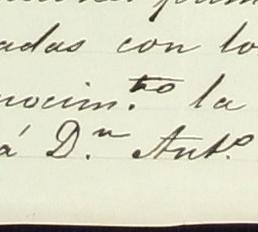 adas con lo
nocim.to la
á D.n Ant.o